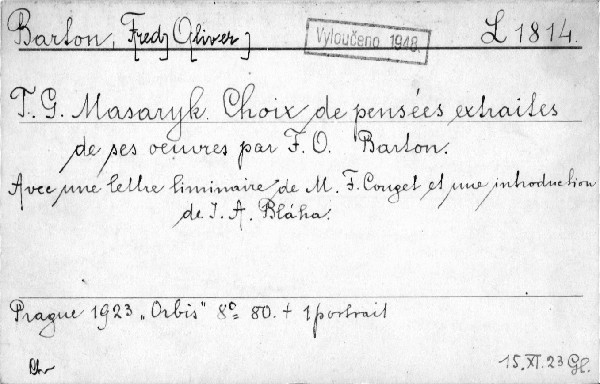 Barton, F[red] O[liver] L 1814.
Vyloučeno 1948.
T. G. Masaryk. Choix de pensées extraites
de ses oeuvres par F. O. Barton.
Avec une lettre liminaire de M. F. Couget et une introduction
de I. A. Bláha.
Prague 1923 „Orbis" 8° 80. + 1 portrait
15. XI. 23 Gl.